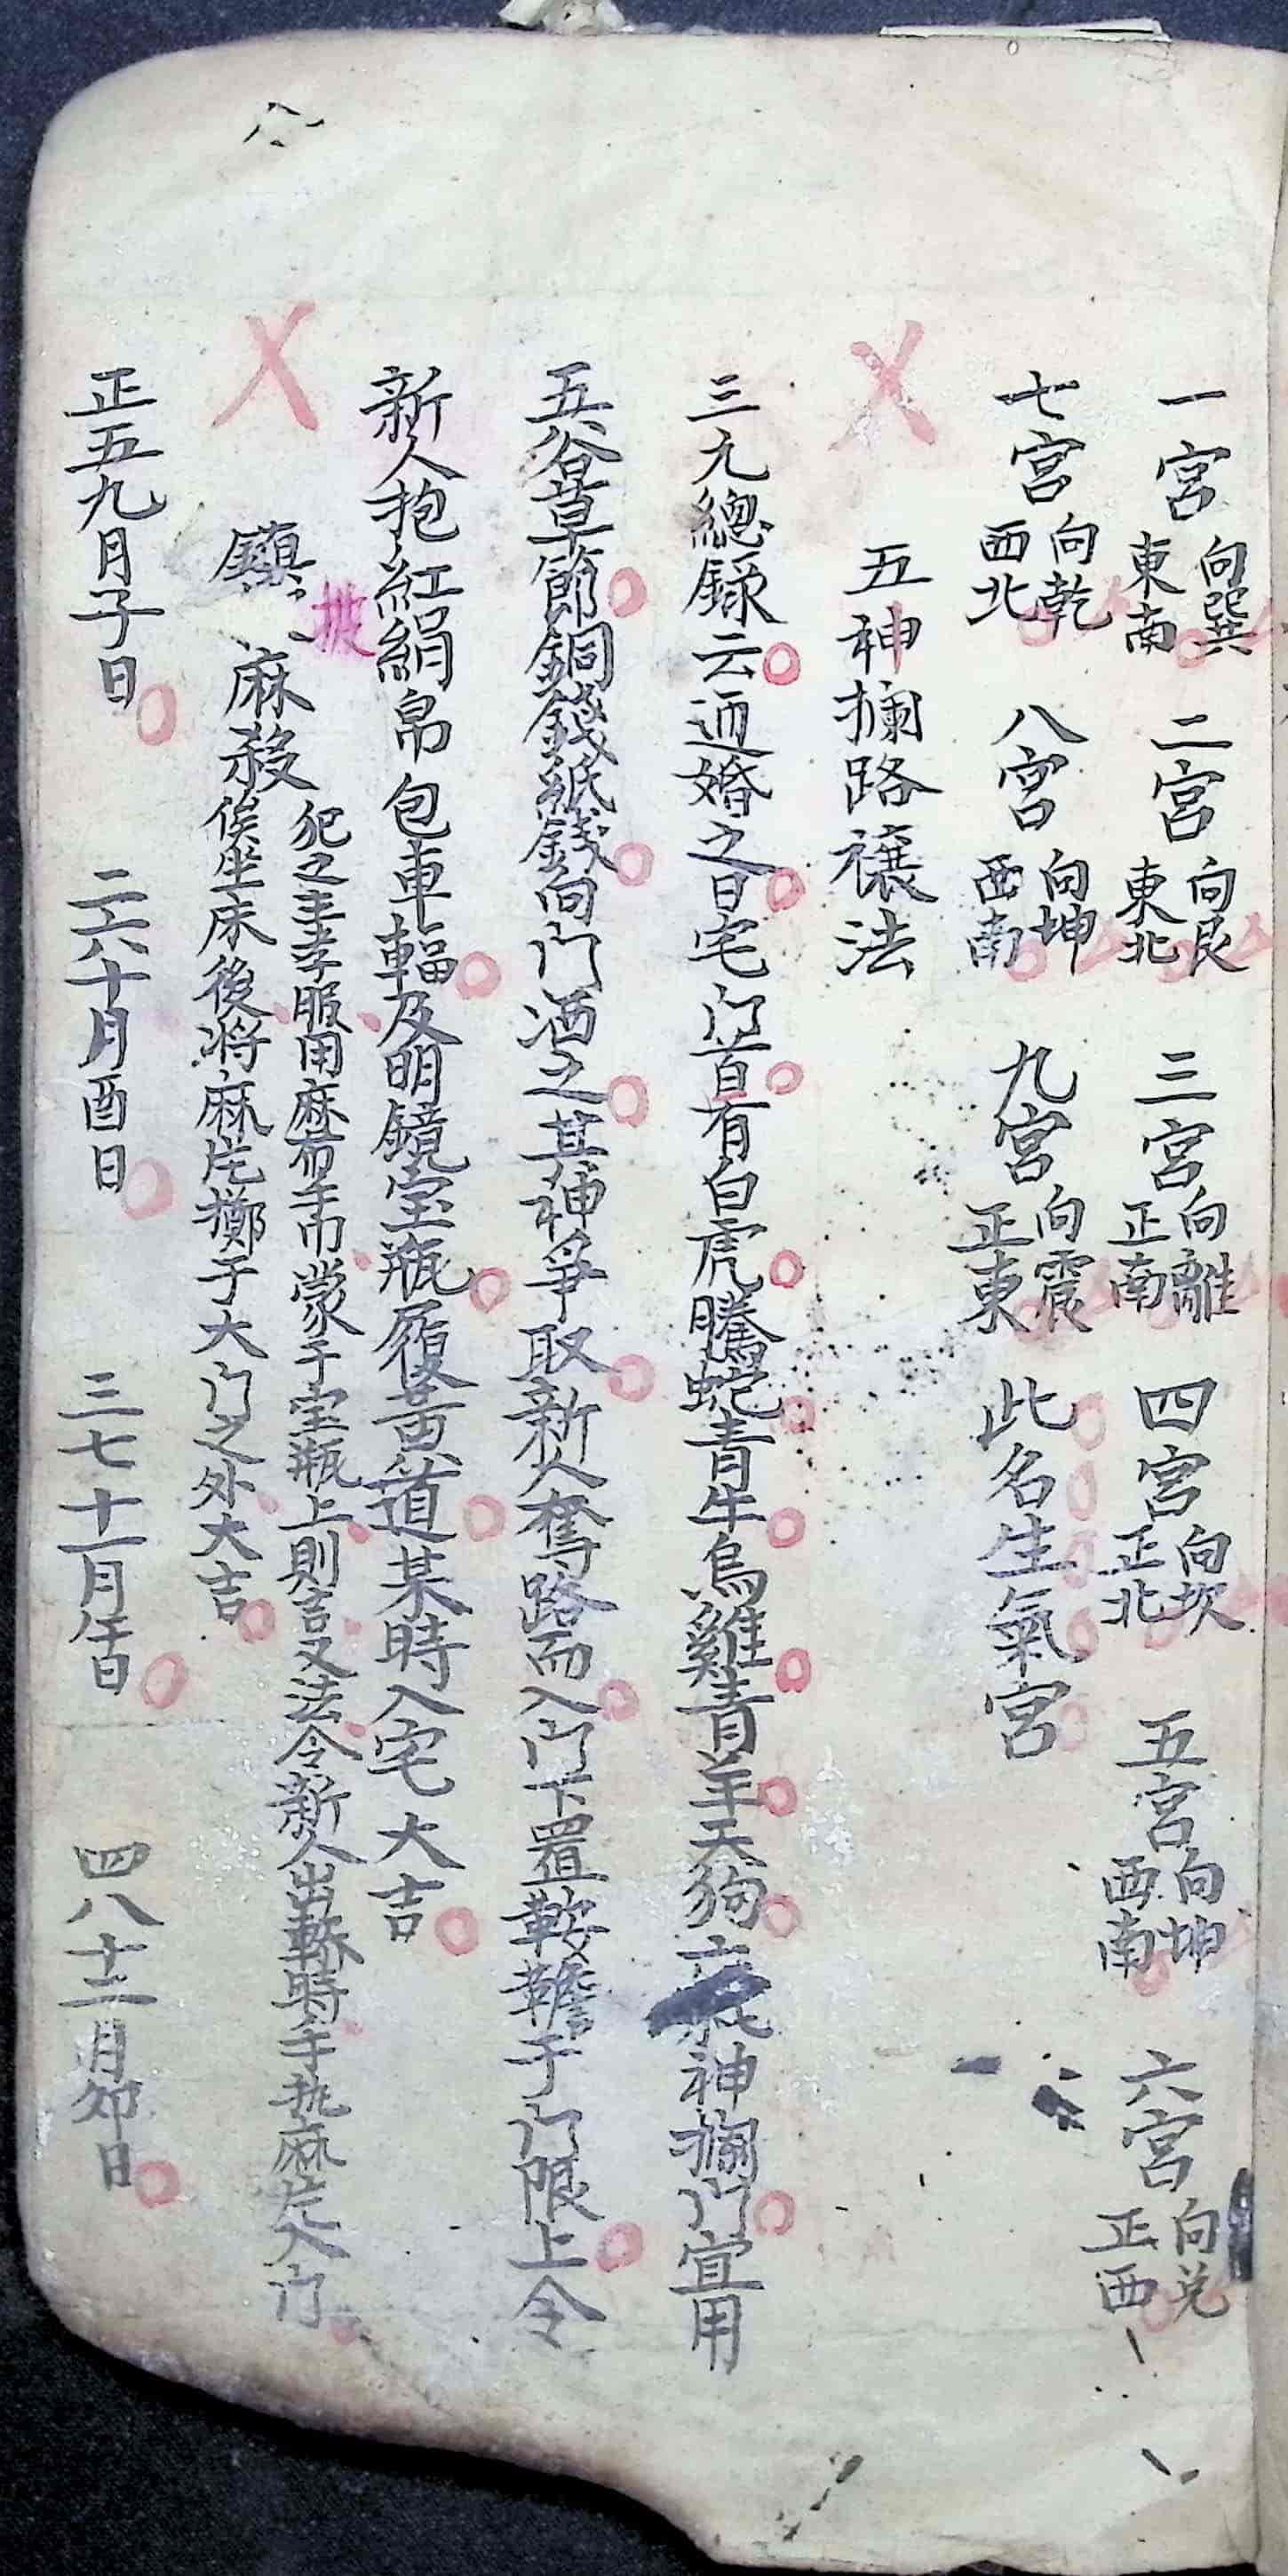 一宮向巽東南 二宮向艮東北 三宮向離正南 四宮向坎正北 五宮向坤西南 六宮向兑正西
七宮向乾西北 八宮向坤西南 九宮向震正東 此名生氣宮
五神攔路禳法
三九總録云迎婚之日宅门首有白虎騰蛇青牛烏雞青羊天狗神攔门宜用
五谷草節銅錢紙錢向门洒之其神爭取新人奪路而入门下置鞍韂于门限上令
新人抱紅絹帛包車輻及明鏡宝瓶履黃道某時入宅大吉
披
鎮麻殺
犯之主孝服用麻布手巾蒙于宝瓶上則吉又法令新人出轎時手执麻庀入门
俟坐床後将麻庀擲于大门之外大吉
正五九月子日 二六十月酉日 三七十一月午日 四八十二月卯日